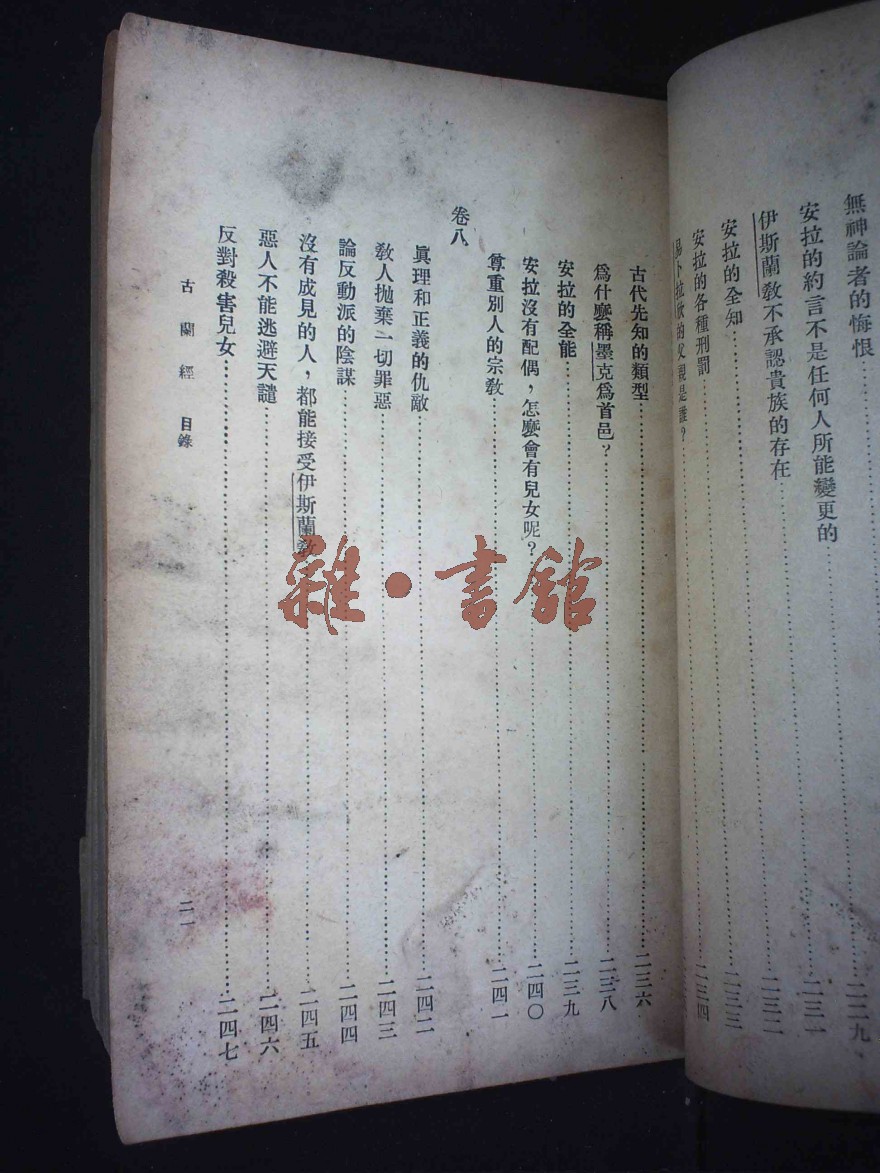 無神論者的悔恨…………二二九
安拉的約言不是任何人所能變更的…………二三一
伊斯蘭教不承認貴族的存在…………二三二
安拉的全知…………二三三
安拉的各種刑罰
易卜拉欣的父親是誰？…………二三四
古代先知的類型…………二三六
爲什麼稱墨克爲首邑？…………二三八
安拉的全能…………二三九
安拉沒有配偶，怎麼會有兒女呢？…………二四〇
尊重別人的宗教…………二四一
卷八
眞理和正義的仇敵…………二四二
教人拋棄一切罪惡…………二四三
論反動派的陰謀…………二四四
沒有成見的人，都能接受伊斯蘭教…………二四五
惡人不能逃避天譴…………二四六
反對殺害兒女…………二四七
古蘭經 目錄
二一
雜·書館